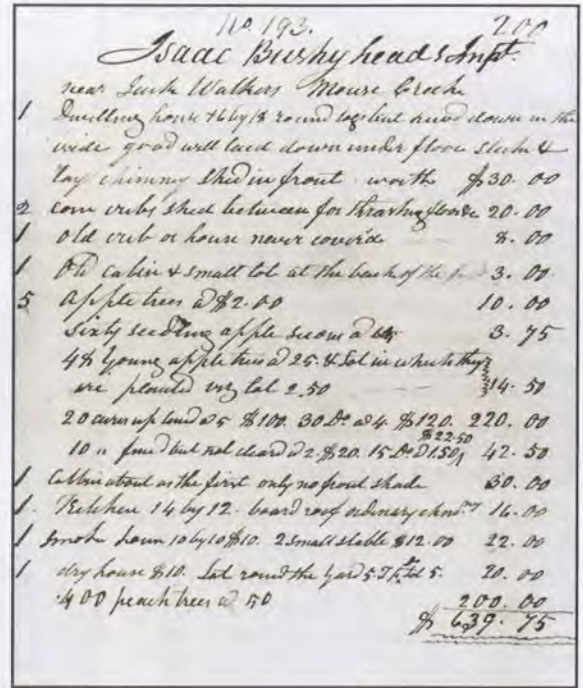 No. 193. 200
Isaac Bushyheads Impt.
near Jack Walkers Mouse Creek
1 Dwelling house 16 by 18 round logs but hued down in the
inside good will laid down under floor &
Clay chimny shed in front worth $30.00
2 corn cribs shed between for thrashing floor &c 20.00
1 old crib or house never cover'd 8.00
1 Old cabin & small lot at the back of the 3.00
5 Apple trees a $2.00 10.00
Sixty seedling apple a 3.75
48 Young apple trees a 25. & Lot in which they
are planted viz lot 2.50 14.50
20 acres up land a 5 $100. 30 Do a 4. $120. 220.00
10 " fenced but not cleard a 2. $20. 15 Do a 1.50 $22.50 42.50
1 Cabbin about as the first only no front shade 30.00
1 Kitchen 14 by 12. board roof ordinary 16.00
1 Smoke house 10 by 10 $10. 2 small stable $12.00 22.00
1 dry house $10. Lot round the yard 5. lot 5. 20.00
400 peach trees a 50 200.00
$ 639.75